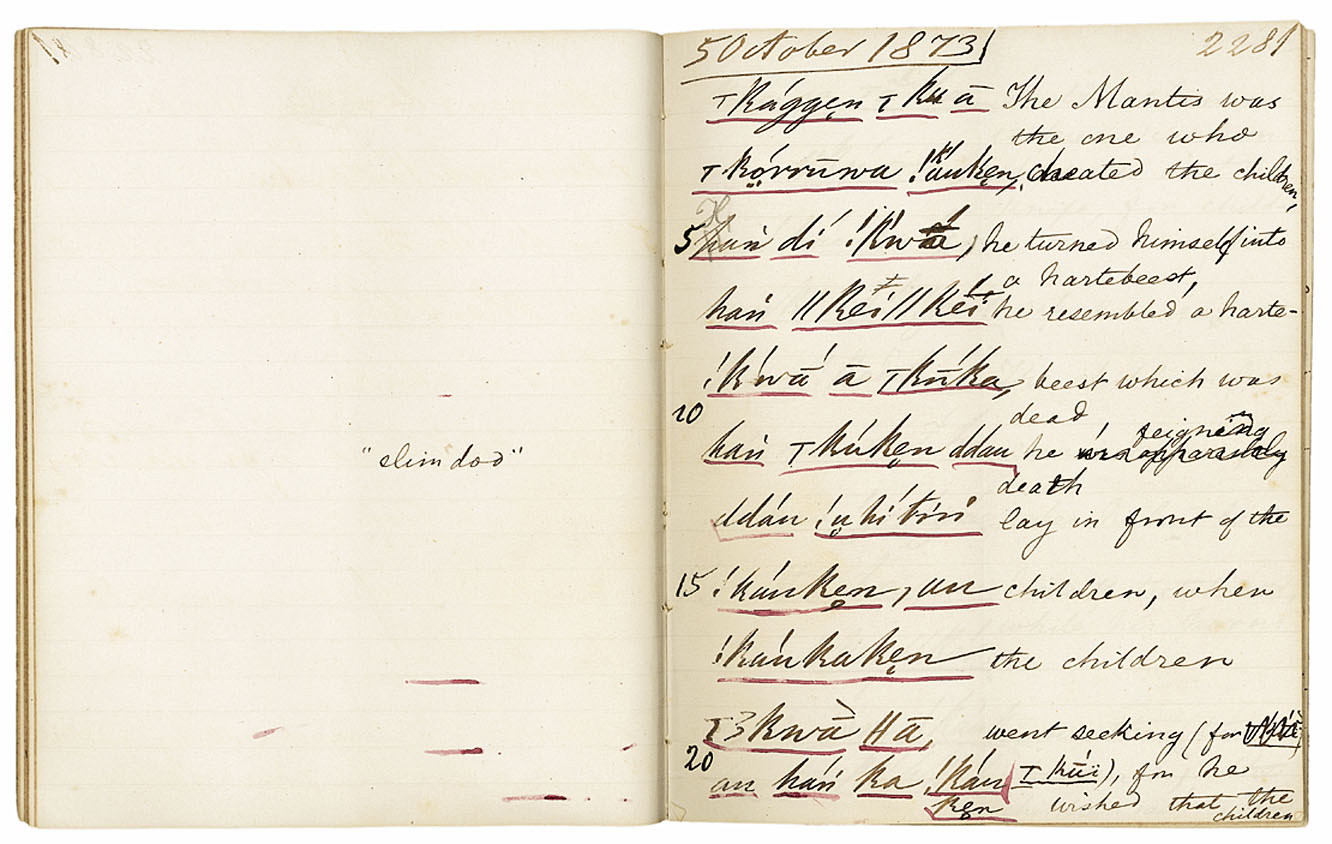 "slim dood"
5 October 1873 2281
Ţkággęn Ţku ā The Mantis was
the one who
Ţkórrūwa !kaukęn, cheated the children,
5 haṅ dí !kwā, he turned himself into
a hartebeest,
haṅ ǁkeíǁkeí he resembled a harte-
!kwā ā Ţkúka, beest which was
10 dead
haṅ Ţkúkęn ddau he feigning
death
ddáu lay in front of the
15 !káukęn, au children, when
!káukakęn the children
kwā ǁā, went seeking (for
20
au háṅ ka !káu Ţkúï), for he
kęn wished that the
children